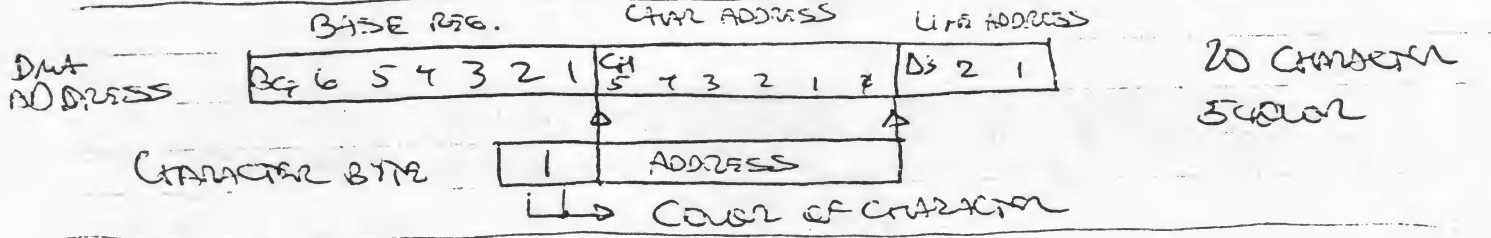 BASE REG. CHAR ADDRESS LINE ADDRESS
DMA ADDRESS
BG 6 5 4 3 2 1 CH 5 4 3 2 1 DS 2 1
20 CHARACTER
5 COLOR
CHARACTER BYTE 1 ADDRESS
COLOR OF CHARACTER